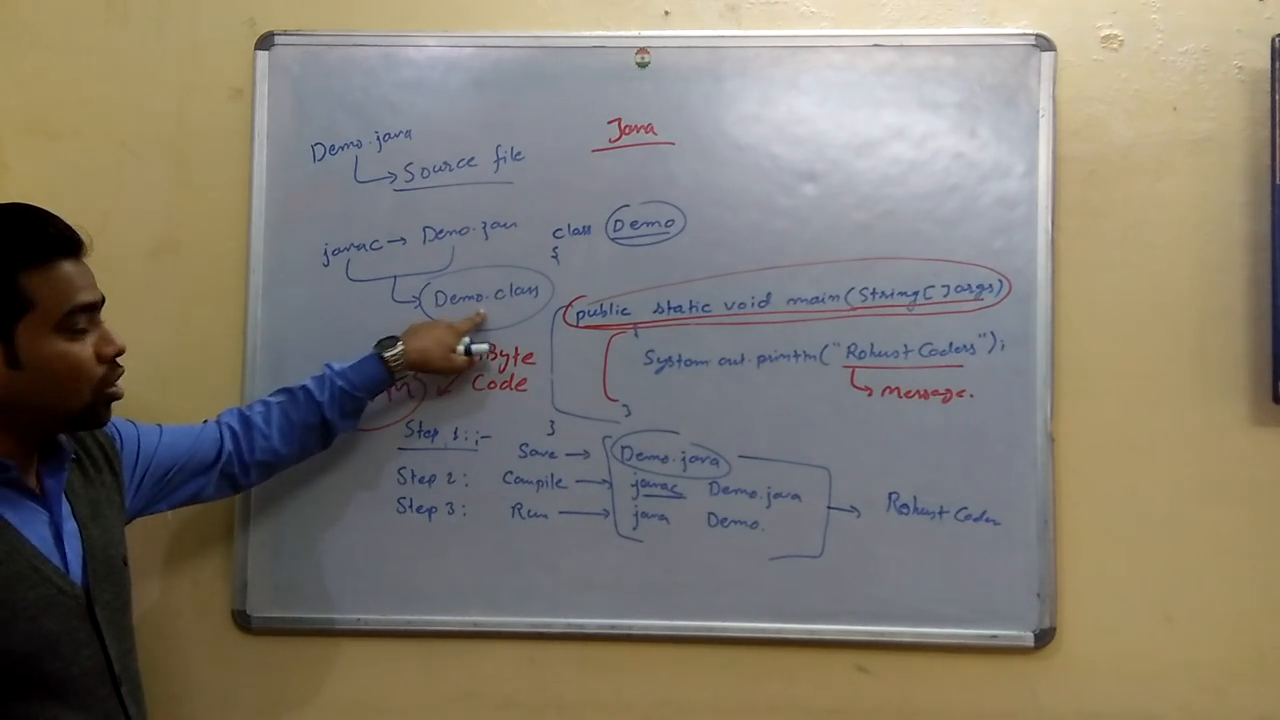 Java
Demo.java
Source file
javac → Demo.java
Demo.class
Byte
Code
class Demo
{
public static void main(String[]args)
{
System.out.println("Robust Coders");
message.
}
}
Step 1:-
Save → Demo.java
Step 2: Compile → javac Demo.java
Step 3: Run → java Demo.
Robust Coder